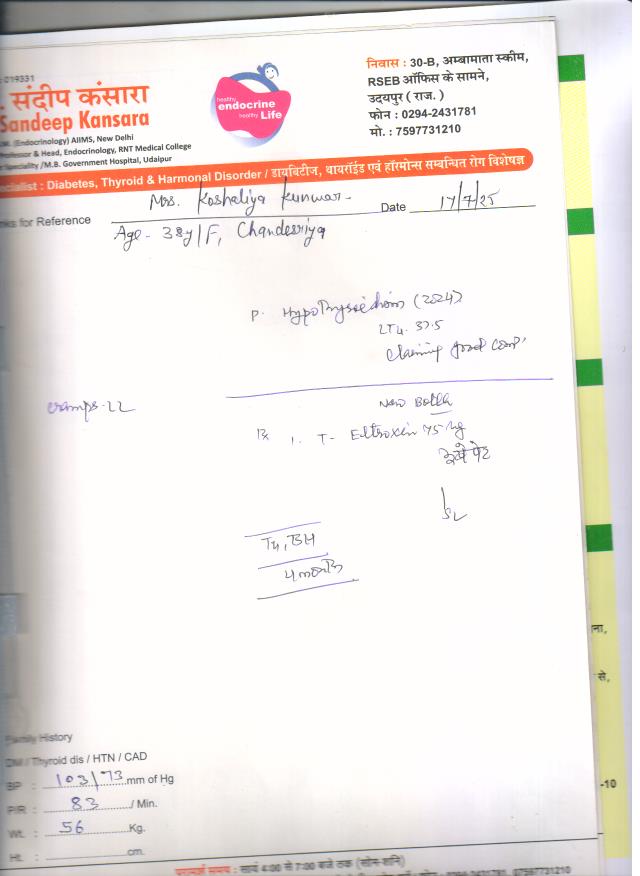 : 019331
. संदीप कंसारा
Sandeep Kansara
M. (Endocrinology) AIIMS, New Delhi
Professor & Head, Endocrinology, RNT Medical College
Speciality /M.B. Government Hospital, Udaipur
healthy
endocrine
healthy Life
निवास : 30-B, अम्बामाता स्कीम,
RSEB ऑफिस के सामने,
उदयपुर ( राज. )
फोन : 0294-2431781
मो. : 7597731210
ecialist : Diabetes, Thyroid & Harmonal Disorder / डायबिटीज, थायरॉईड एवं हॉरमोन्स सम्बन्धित रोग विशेषज्ञ
nks for Reference Mrs. Koshaliya Kunwar - Date 17/7/25
Age - 38y/F, Chanderiya
P. (2024)
LT4. 37.5
Claiming good
cramps - LL
New Bottle
Rx 1. T- Eltroxin 75 ug
पेट
T4, TSH
Family History
DM / Thyroid dis / HTN / CAD
BP : 103/73 mm of Hg
P/R : 83 / Min.
Wt. : 56 Kg.
Ht. : cm.
परामर्श समय : सायं 4:00 से 7:00 बजे तक (सोम-शनि)
0294-2431781, 07597731210
ना,
से,
-10